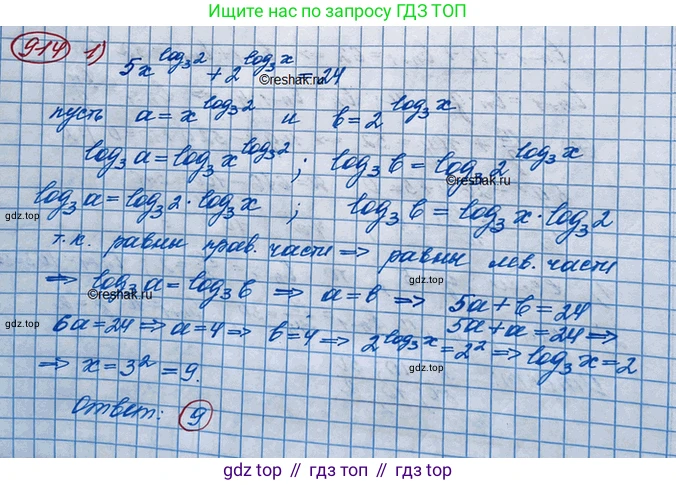 Ищите нас по запросу ГДЗ ТОП
914 1) 5x^log₃2 + 2^log₃x = 24
©reshak.ru
пусть a = x^log₃2 и b = 2^log₃x
log₃a = log₃x^log₃2 ; log₃b = log₃2^log₃x
©reshak.ru
log₃a = log₃2 · log₃x ; log₃b = log₃x · log₃2
gdz.top gdz.top
т.к. равны прав. части ⇒ равны лев. части
⇒ log₃a = log₃b ⇒ a = b ⇒ 5a + b = 24
©reshak.ru gdz.top
5a + a = 24 ⇒
6a = 24 ⇒ a = 4 ⇒ b = 4 ⇒ 2^log₃x = 2² ⇒ log₃x = 2
gdz.top
⇒ x = 3² = 9.
gdz.top
Ответ: 9
gdz.top
gdz top // гдз топ // gdz.top